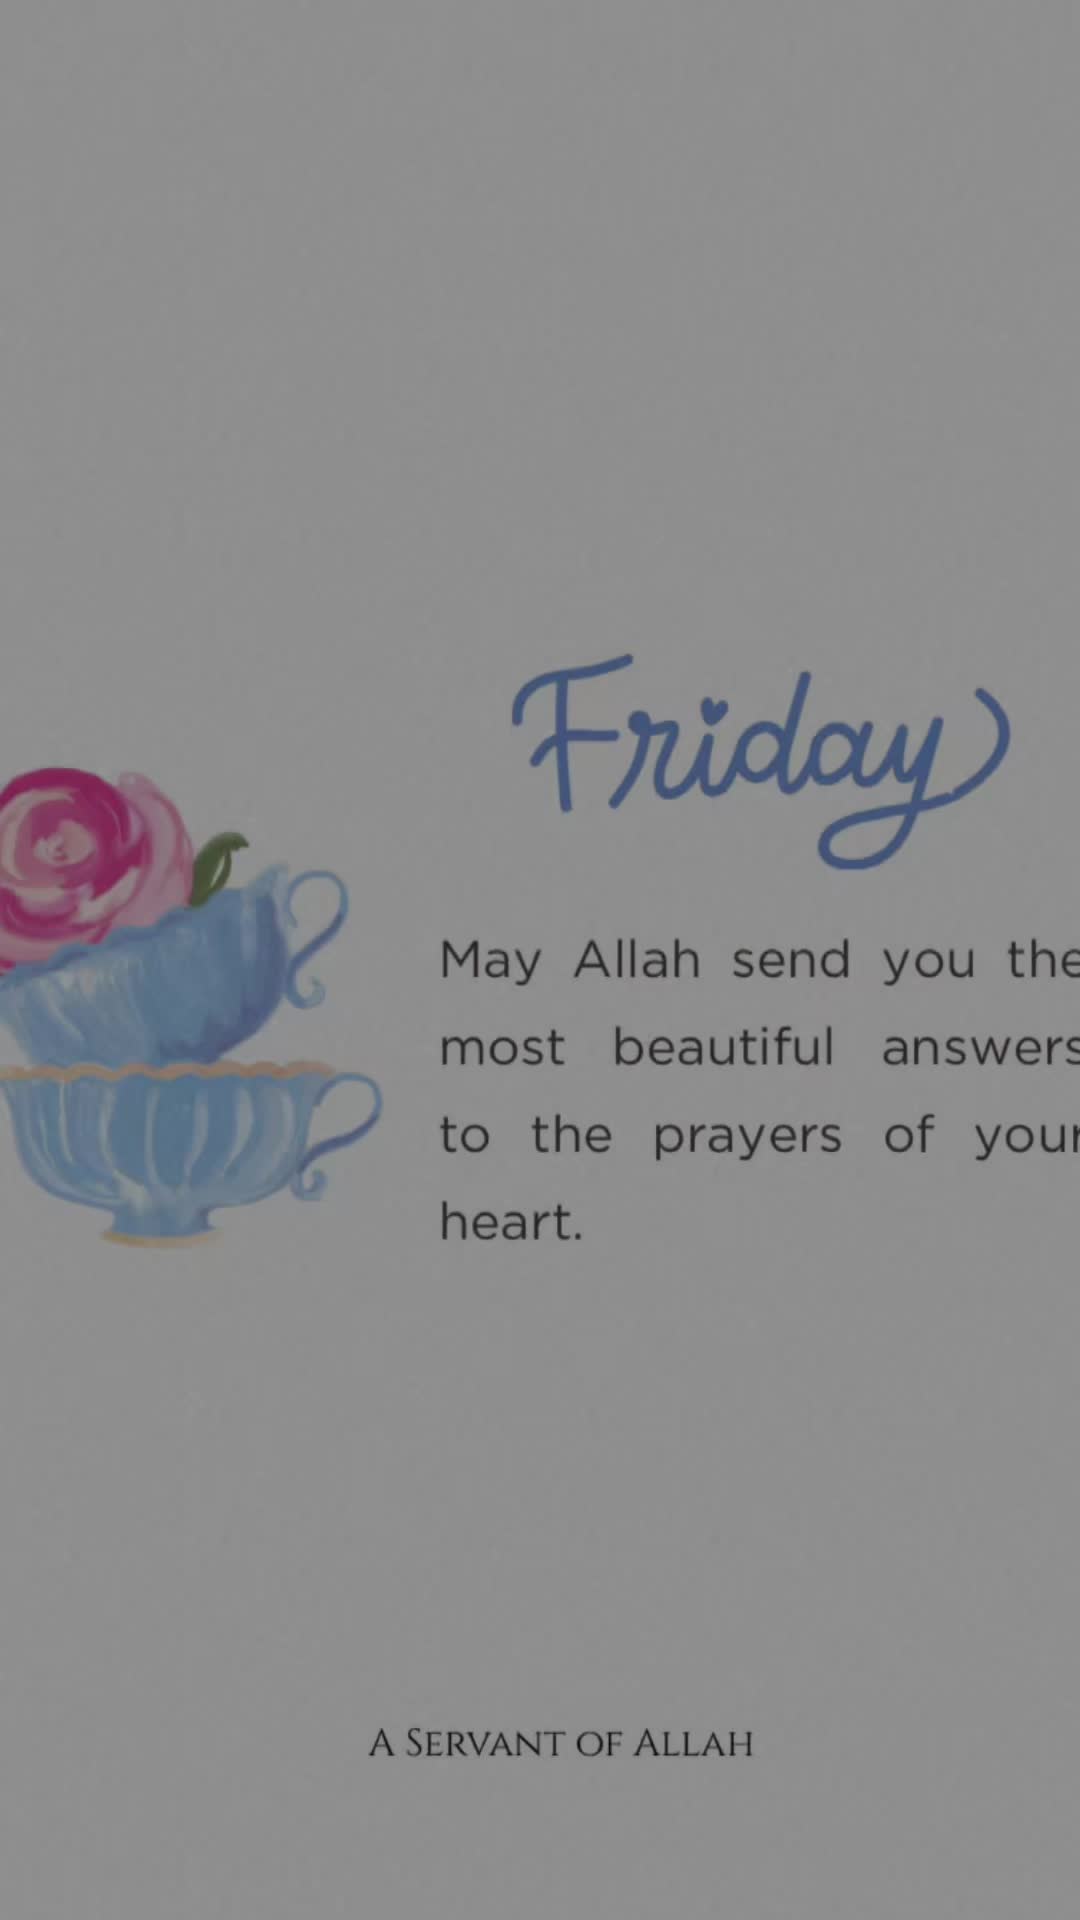 Friday
May Allah send you the
most beautiful answers
to the prayers of your
heart.
A SERVANT OF ALLAH